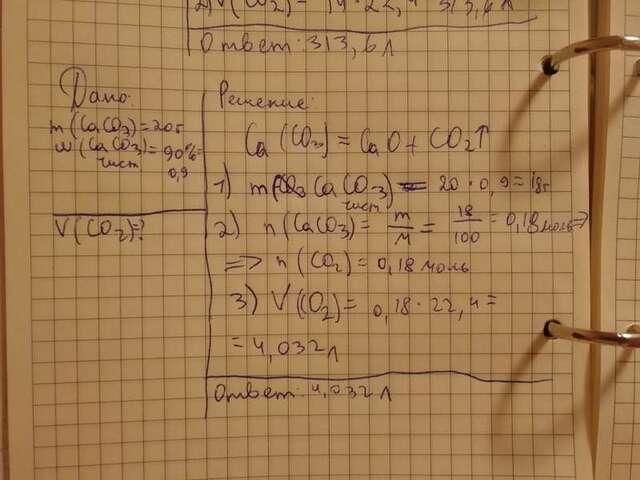 2) V(CO₂) = 14 · 22,4 = 313,6 л
Ответ: 313,6 л
Дано:
m(CaCO₃) = 20г
w(CaCO₃) = 90% =
чист
0,9
V(CO₂) = ?
Решение:
Ca(CO₃) = CaO + CO₂↑
1) m(CaCO₃) = 20 · 0,9 = 18г
чист
2) n(CaCO₃) = m/M = 18/100 = 0,18 моль =>
=> n(CO₂) = 0,18 моль
3) V(CO₂) = 0,18 · 22,4 =
= 4,032 л
Ответ: 4,032 л